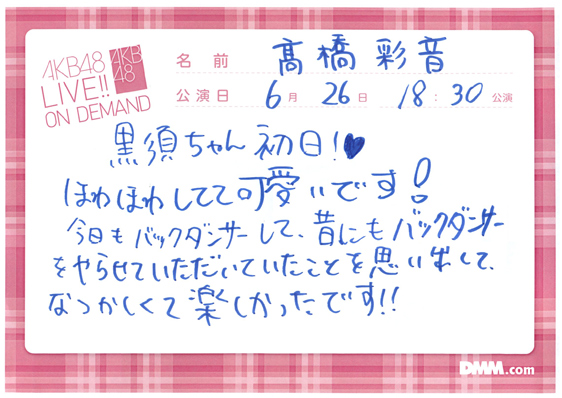 AKB48
LIVE!!
ON DEMAND
AKB
48
名前 髙橋彩音
公演日 6月 26日 18:30 公演
黒須ちゃん初日!♥
ほわほわしてて可愛いです!
今日もバックダンサーして、昔にもバックダンサー
をやらせていただいていたことを思い出して、
なつかしくて楽しかったです!!
DMM.com